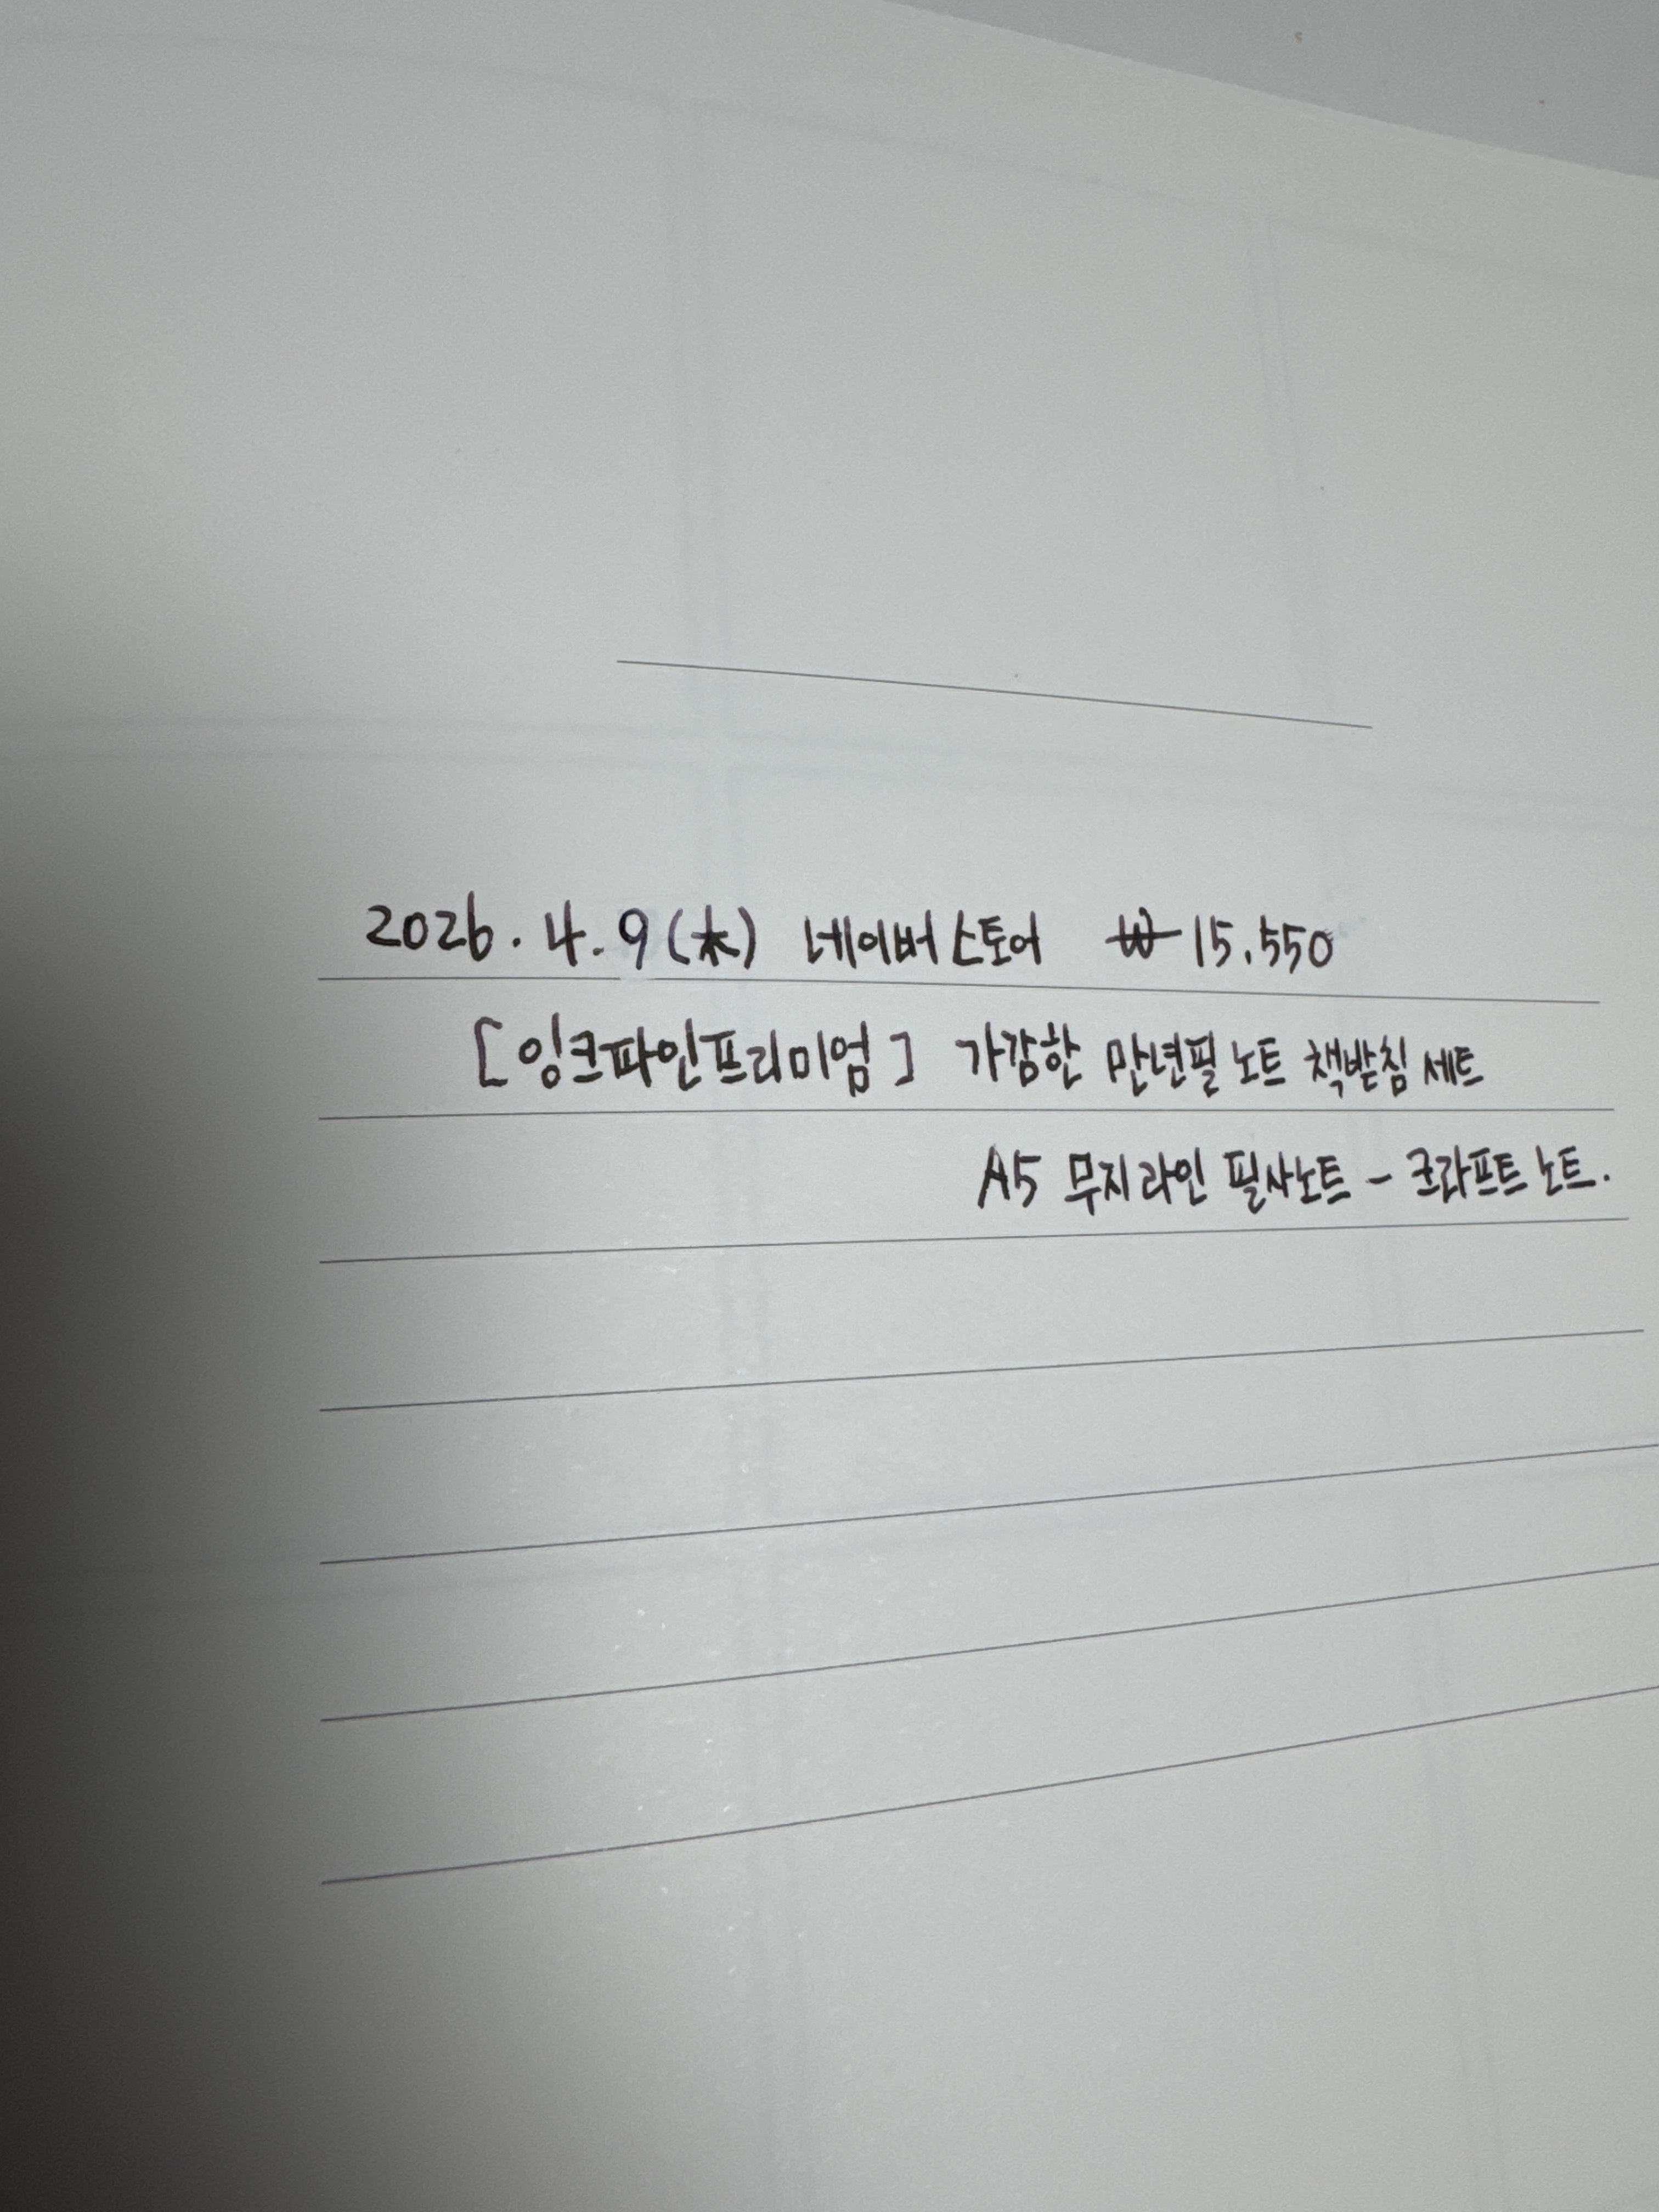 2026. 4. 9 (木) 네이버스토어 ₩15.550
[잉크파인프리미엄] 가감한 만년필 노트 책받침 세트
A5 무지라인 필사노트 - 크라프트 노트.